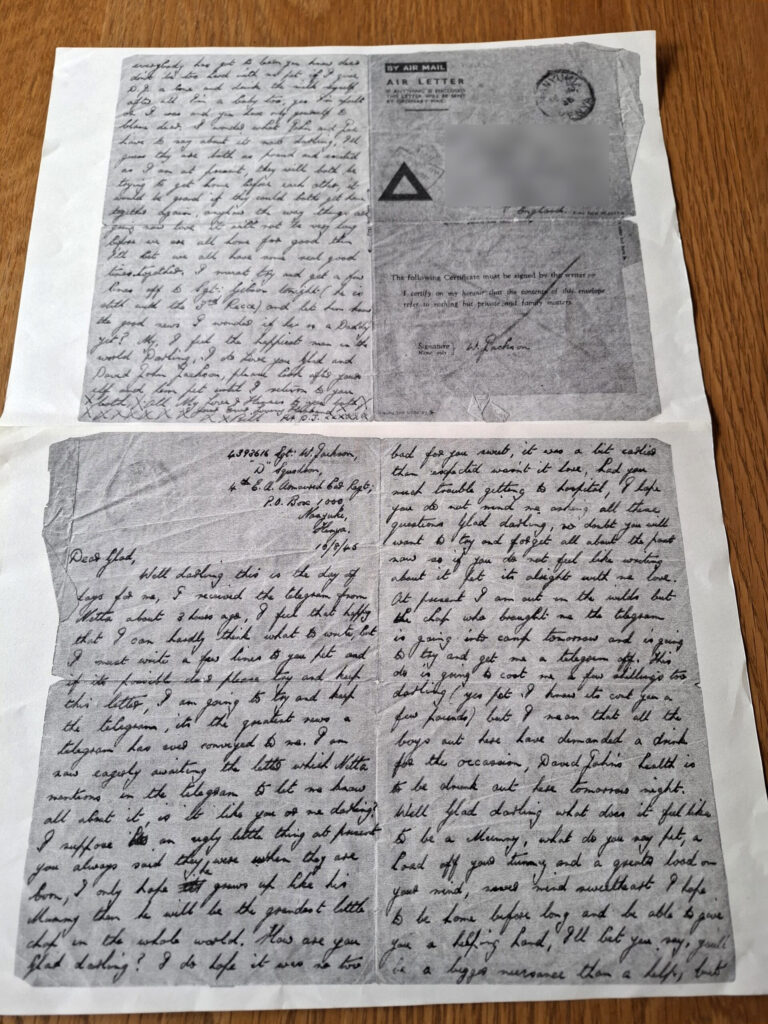 4393616 Sgt: W. Jackson,
'D' Squadron,
4th E. A. Armoured Car Regt;
P.O. Box 1000,
Nanyuki,
Kenya.
16/8/45
Dear Glad,
Well darling this is the day of
days for me, I received the telegram from
Netta about 3 hours ago, I feel that happy
that I can hardly think what to write, but
I must write a few lines to you pet and
if its possible dear please try and keep
this letter, I am going to try and keep
the telegram, its the greatest news a
telegram has ever conveyed to me. I am
now eagerly awaiting the letter which Netta
mentions in the telegram to let me know
all about it, is it like you or me darling?
I suppose an ugly little thing at present
you always said they were when they are
born, I only hope he grows up like his
Mummy then he will be the grandest little
chap in the whole world. How are you
Glad darling? I do hope it was no too
bad for you sweet, it was a bit earlier
than expected wasn't it love, had you
much trouble getting to hospital, I hope
you do not mind me asking all these
questions Glad darling, no doubt you will
want to try and forget all about the past
now so if you do not feel like writing
about it pet its alright with me love.
At present I am out in the wilds but
the chap who brought me the telegram
is going into camp tomorrow and is going
to try and get me a telegram off. This
do is going to cost me a few shillings too
darling (yes pet I know its cost you a
few pounds) but I mean that all the
boys out here have demanded a drink
for the occasion, David John's health is
to be drunk out here tomorrow night.
Well Glad darling what does it feel like
to be a Mummy, what do you say pet, a
load off your tummy and a greater load on
your mind, never mind sweetheart I hope
to be home before long and be able to give
you a helping hand, I'll bet you say, you'll
be a bigger nuisance than a help, but
everybody has got to learn you know dear
dont be too hard with me pet if I give
D.J. a and drink the milk myself
after all I'm a baby too, yes I'm spoilt
I was and you have only yourself to
blame dear. I wonder what John and
have to say about it now darling, I'll
guess they are both as proud and excited
as I am at present, they will both be
trying to get home before each other, it
would be grand if they could both get home
together again, anyhow the way things are
going now love it will not be very long
before we are all home for good then
I'll bet we all have some real good
times together. I must try and get a few
lines off to Sgt: tonight (he is
still with the 3rd Recce) and let him know
the good news I wonder if he is a Daddy
yet? My, I feel the happiest man in the
world Darling, I do love you Glad and
David John Jackson, please look after your
self and him pet until I return to you
both. All My Love & Kisses to you both
Your Ever Loving Husband
BY AIR MAIL
AIR LETTER
IF ANYTHING IS ENCLOSED
THIS LETTER WILL BE SENT
BY ORDINARY MAIL.
NANYUKI
KENYA
England.
The following Certificate must be signed by the writer :—
I certify on my honour that the contents of this envelope
refer to nothing but private and family matters.
Signature
Name only
W. Jackson